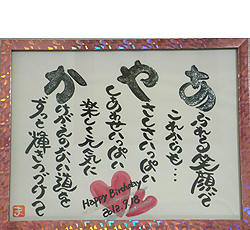 あふれる笑顔で
これからも…
やさしさいっぱい
しあわせいっぱい
楽しく元気に
かけがえのない道を
ずっと輝きつづけて
Happy Birthday
2012.9.16